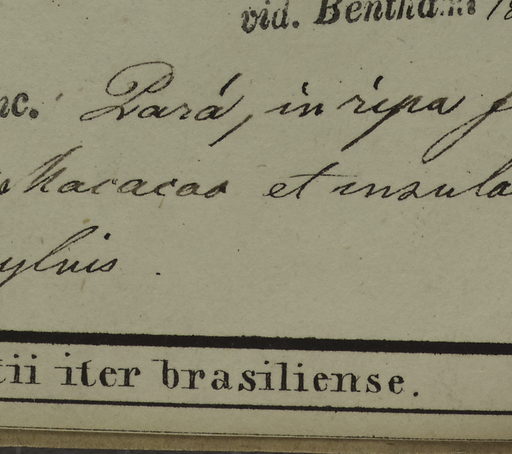 vid. Bentham
nc. Pará, in ripa
Macacao et insula
sylvis.
tii iter brasiliense.